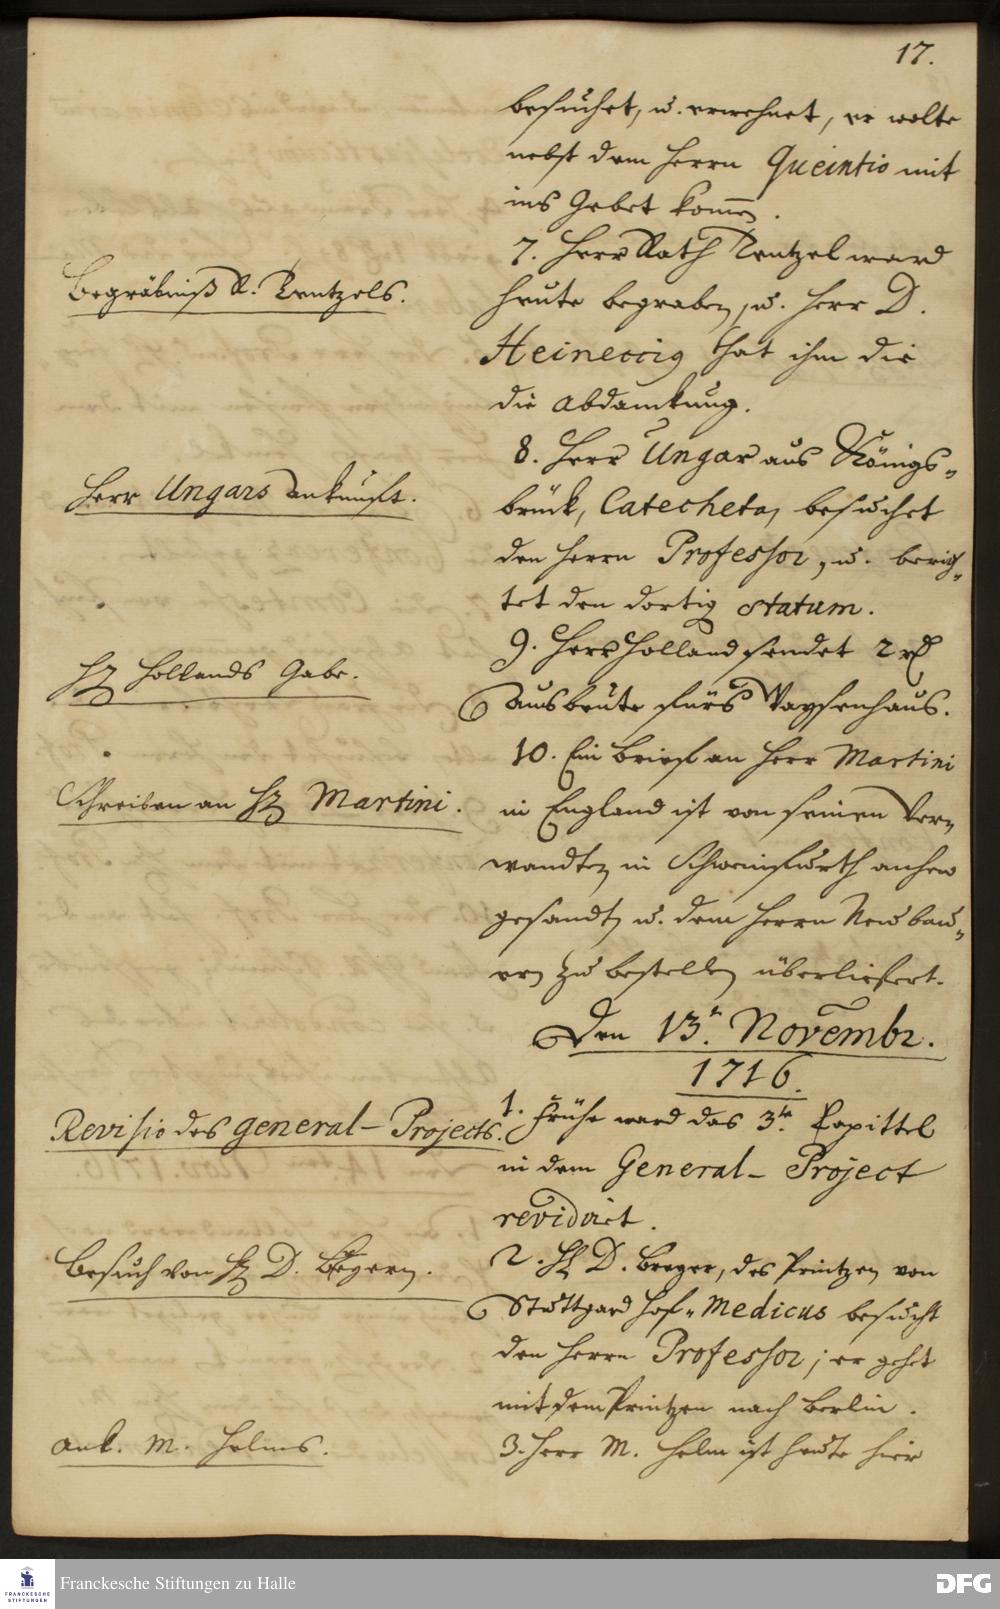 17.
besuchet, u. erwehnet, er wolte
nebst dem Herrn Queintio mit
ins Gebet kommen.
Begräbniß R. Rentzels.
7. Herr Rath Rentzel ward
heute begraben, u. Herr D.
Heineccig that ihm die
die Abdanckung.
Herr Ungars Ankunft.
8. Herr Ungar aus Königs-
brück, Catecheta, besuchet
den Herrn Professor, u. berich-
tet den dortig statum.
H Hollands Gabe.
9. Herr Holland sendet 2 rth
Ausbeute fürs Waysenhaus.
Schreiben an H Martini.
10. Ein Brief an Herr Martini
in England ist von seinen Ver-
wandten in Schweinfurth anhero
gesandt, u. dem Herrn Neubau-
ern zu bestellen überliefert.
Den 13t. Novembr.
1716.
Revisio des general-Projects.
1. Frühe ward das 3te. Capittel
in dem General-Project
revidiret.
Besuch von H D. Begern.
2. H D. Breyer, des Printzen von
Stuttgard Hof-Medicus besucht
den Herrn Professor; er gehet
mit dem Printzen nach Berlin.
Ank. M. Helms.
3. Herr M. Helm ist heute hier
Franckesche Stiftungen zu Halle
FRANCKESCHE
STIFTUNGEN
DFG